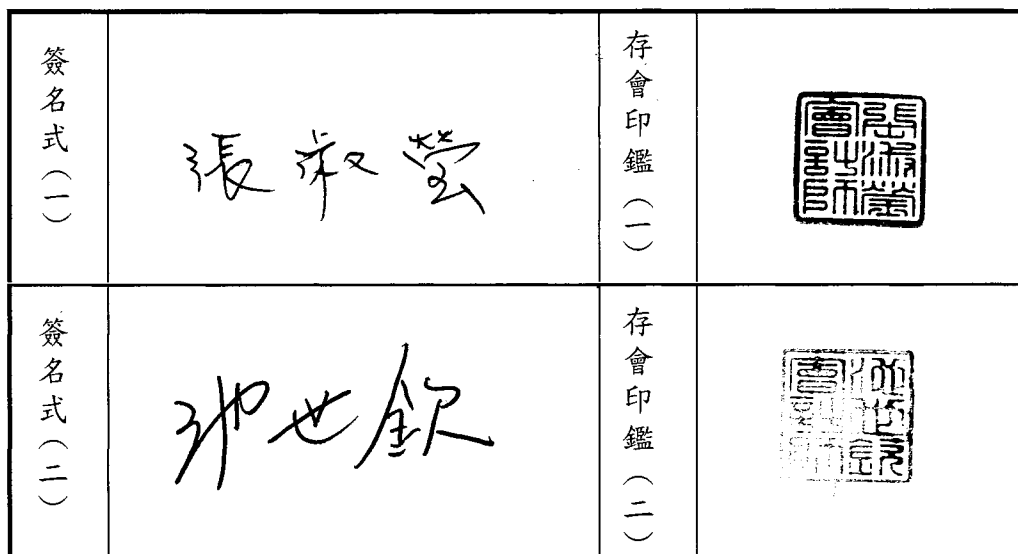 簽名式（一）
張淑瑩
存會印鑑（一）
張淑瑩會計師
簽名式（二）
池世欽
存會印鑑（二）
池世欽會計師